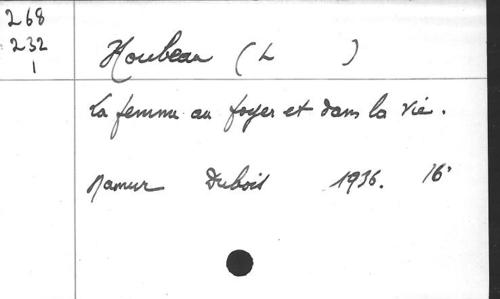 268
232
1
Houbeau (L )
La femme au foyer et dans la vie.
Namur Dubois 1936. 16°